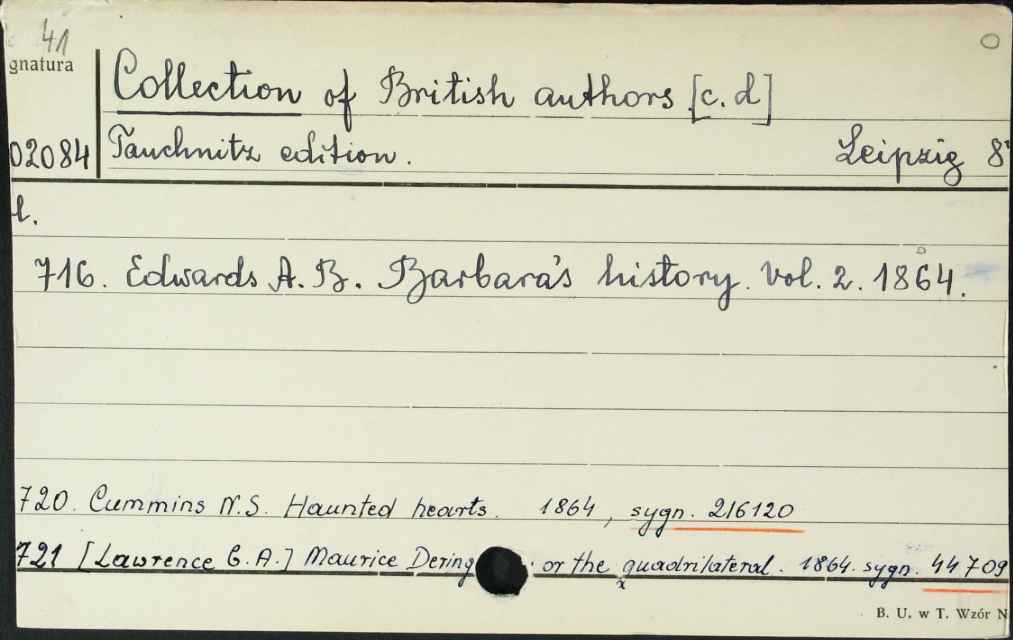 41
gnatura
Collection of British authors [c. d]
02084 Tauchnitz edition. Leipzig 8°
t.
716. Edwards A. B. Barbara's history. Vol. 2. 1864.
720. Cummins N.S. Haunted hearts. 1864, sygn. 216120
721 [Lawrence G. A.] Maurice Dering : or the quadrilateral. 1864. sygn. 44709
B. U. w T. Wzór N